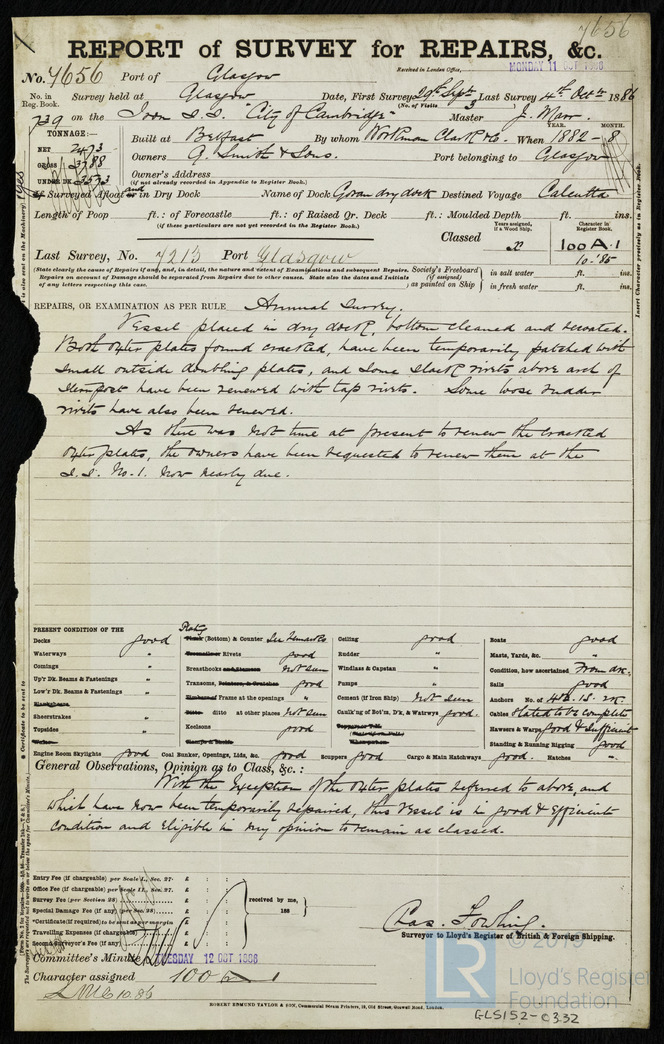 7656
REPORT of SURVEY for REPAIRS, &c.
Received in London Office, MONDAY 11 OCT 1886
No. 7656 Port of Glasgow
No. in Reg. Book. Survey held at Glasgow Date, First Survey 29th Sept Last Survey 4th Octr 1886
(No. of Visits 3)
739 on the Iron S.S. "City of Cambridge" Master J. Marr.
TONNAGE:—
NET 2473
GROSS 3788
UNDER DK 3573
YEAR. MONTH.
Built at Belfast By whom Workman Clark & Co. When 1882 - 8
Owners G. Smith & Sons. Port belonging to Glasgow
Owner's Address
(if not already recorded in Appendix to Register Book.)
If Surveyed Afloat and in Dry Dock Name of Dock Govan dry dock Destined Voyage Calcutta
Length of Poop ft.: of Forecastle ft.: of Raised Qr. Deck ft.: Moulded Depth ft. ins.
(if these particulars are not yet recorded in the Register Book.)
Years assigned, if a Wood Ship.
Character in Register Book.
Classed 100 A.1
10.'85
Last Survey, No. 7213 Port Glasgow
(State clearly the cause of Repairs if any, and, in detail, the nature and extent of Examinations and subsequent Repairs. Repairs on account of Damage should be separated from Repairs due to other causes. State also the dates and Initials of any letters respecting this case.
Society's Freeboard (if assigned) as painted on Ship
in salt water ft. ins.
in fresh water ft. ins.
REPAIRS, OR EXAMINATION AS PER RULE Annual Survey.
Vessel placed in dry dock, bottom cleaned and recoated.
Both oxter plates found cracked, have been temporarily patched with
small outside doubling plates, and some slack rivets above arch of
Sternpost have been renewed with tap rivets. Some loose rudder
rivets have also been renewed.
As there was not time at present to renew the cracked
oxter plates, the owners have been requested to renew them at the
S.S. No. 1. now nearly due.
PRESENT CONDITION OF THE
Decks good
Waterways "
Comings "
Up'r Dk. Beams & Fastenings "
Low'r Dk. Beams & Fastenings "
Sheerstrakes "
Topsides "
Plating (Bottom) & Counter See Remarks
Rivets good
Breasthooks not seen
Transoms, good
Frame at the openings "
ditto at other places not seen
Keelsons good
Ceiling good
Rudder "
Windlass & Capstan "
Pumps "
Cement (if Iron Ship) not seen
Caulk'ng of Bot'm, D'k, & Watrwys good.
Boats good
Masts, Yards, &c. "
Condition, how ascertained From dk.
Sails good
Anchors No. of 4B. 1S. 2K.
Cables Stated to be complete
Hawsers & Warps good & sufficient
Standing & Running Rigging good
Engine Room Skylights good Coal Bunker, Openings, Lids, &c. good Scuppers good Cargo & Main Hatchways good. Hatches "
General Observations, Opinion as to Class, &c.:
With the exception of the oxter plates referred to above, and
which have now been temporarily repaired, this vessel is in good & efficient
condition and eligible in my opinion to remain as classed.
Entry Fee (if chargeable) per Scale I., Sec. 27. £ : :
Office Fee (if chargeable) per Scale II., Sec. 27. £ : :
Survey Fee (per Section 28) £ : :
Special Damage Fee (if any) (per Sec. 28) £ : :
*Certificate (if required) to be sent as per margin
Travelling Expenses (if chargeable) £ : :
Second Surveyor's Fee (if any) £ : :
received by me,
188
Surveyor to Lloyd's Register of British & Foreign Shipping.
Committee's Minute TUESDAY 12 OCT 1886
Character assigned 100 A 1
LMC 10.86
ROBERT EDMUND TAYLOR & SON, Commercial Steam Printers, 19, Old Street, Goswell Road, London.
LR
© 2019
Lloyd's Register
Foundation
GLS152-0332
Insert Character precisely as in Register Book.